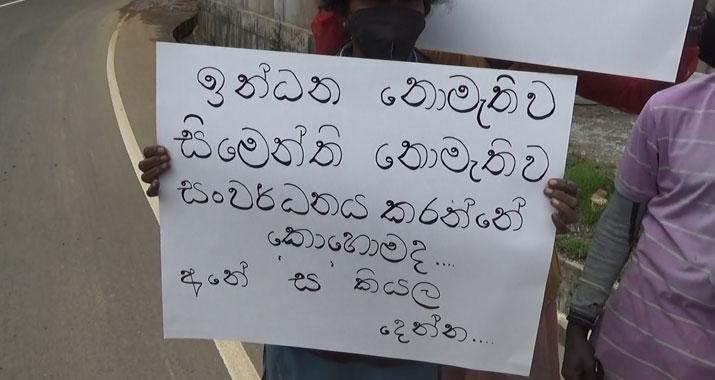 ඉන්ධන නොමැතිව
සිමෙන්ති නොමැතිව
සංවර්ධනය කරන්නේ
කොහොමද....
අනේ 'ස' කියල
දෙන්න....